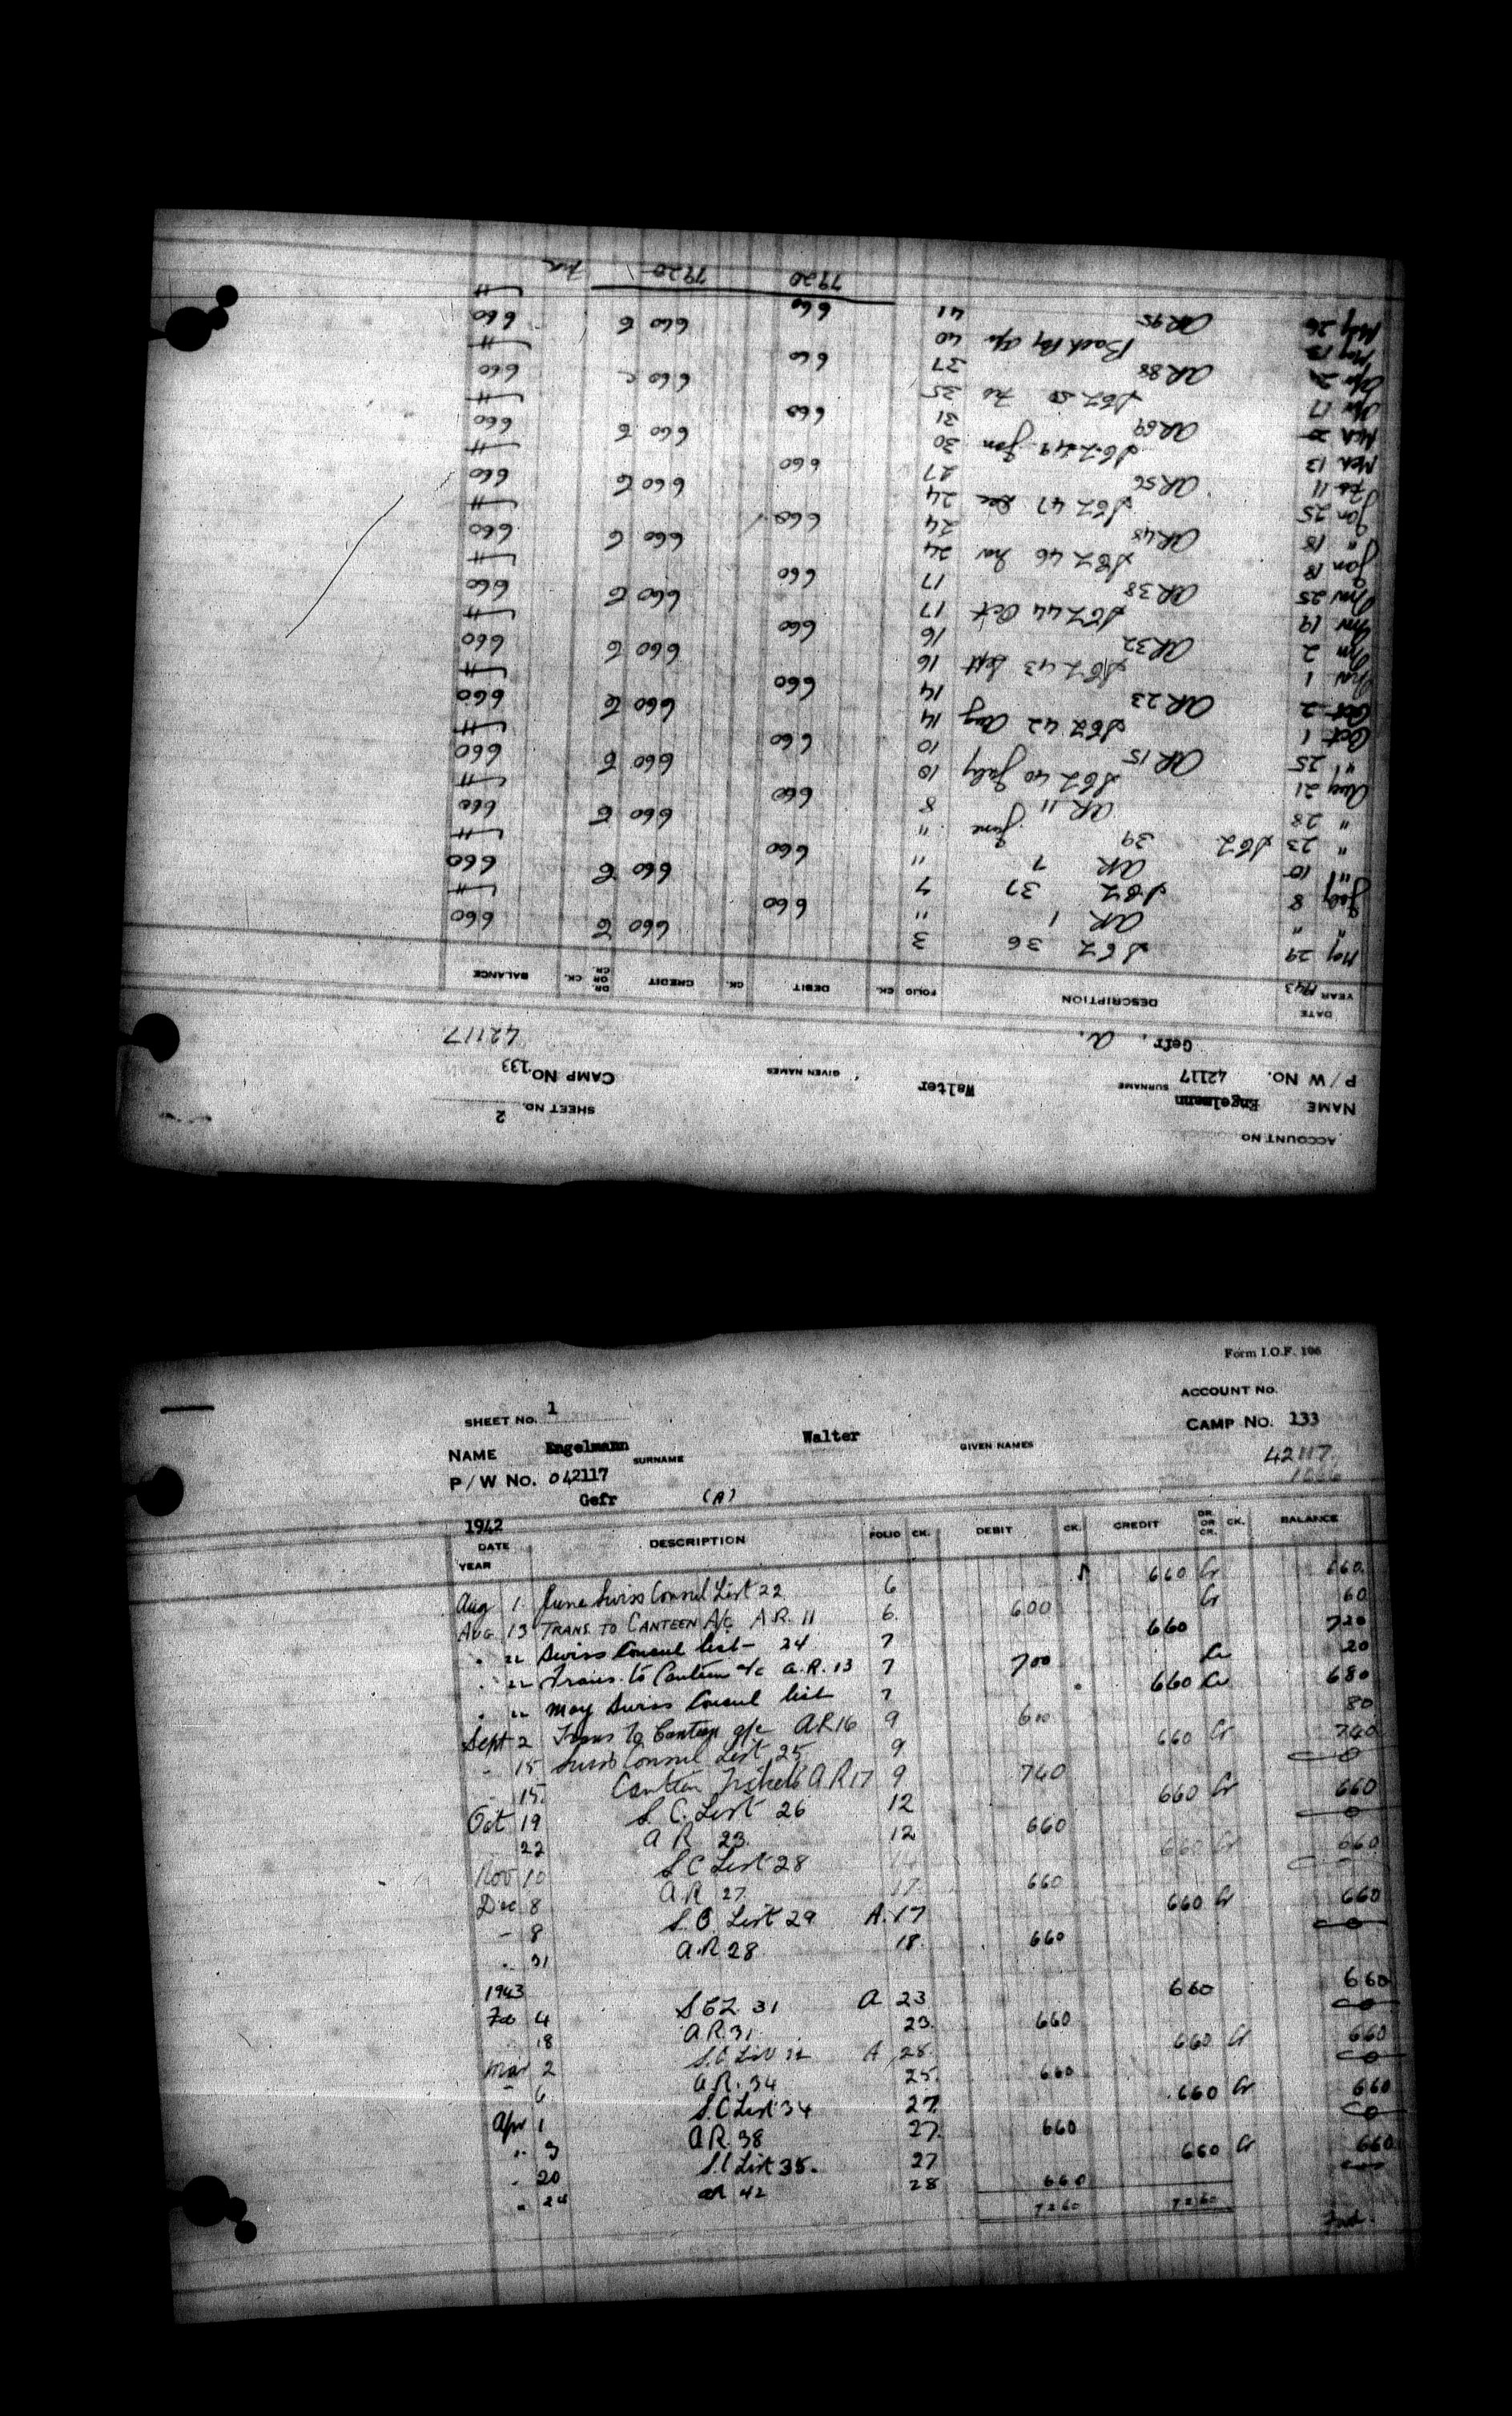 ACCOUNT NO.
SHEET NO. 2
NAME Engelmann SURNAME Walter GIVEN NAMES CAMP NO. 133
P/W NO. 42117
Gefr. A. 42117
DATE YEAR 1943 DESCRIPTION FOLIO CK. DEBIT CK. CREDIT DR. OR CR. CK. BALANCE
May 29 SCL 36 3 660 C 660
" " AR 1 " 660
July 8 SCL 37 7 660 C 660
" 10 AR 7 " 660
" 23 SCL 39 June " 660 C 660
" 28 AR 11 8 660
Aug 21 SCL 40 July 10 660 C 660
" 25 AR 15 10 660
Oct 1 SCL 42 Aug 14 660 C 660
Oct 2 AR 23 14 660
Nov 1 SCL 43 Sept 16 660 C 660
Nov 2 AR 32 16 660
Nov 19 SCL 44 Oct 17 660 C 660
Nov 25 AR 38 17 660
Jan 18 SCL 46 Nov 24 660 C 660
" 18 AR 48 24 660
Jan 25 SCL 47 Dec 24 660 C 660
Feb 11 AR 56 27 660
Mch 13 SCL 49 Jan 30 660 C 660
Mch 20 AR 69 31 660
Apr 17 SCL 50 Feb 35 660 C 660
Apr AR 88 37 660
May 13 Back Pay Apr 40 660 C 660
May 26 AR 95 41 660
7920 7920
Form I.O.F. 106
ACCOUNT NO.
SHEET NO. 1 CAMP NO. 133
NAME Engelmann SURNAME Walter GIVEN NAMES
P/W NO. 042117 42117
Gefr (A)
1942
DATE YEAR DESCRIPTION FOLIO CK. DEBIT CK. CREDIT DR. OR CR. CK. BALANCE
Aug 1 June Swiss Consul List 22 6 660 Cr 660
AUG 13 TRANS. TO CANTEEN A/C A.R. 11 6 600 Cr 60
" 22 Swiss Consul List 24 7 660 720
" 22 Trans. to Canteen a/c A.R. 13 7 700 Cr 20
" 22 May Swiss Consul list 7 660 Cr 680
Sept 2 Trans To Canteen a/c AR 16 9 600 80
" 15 Swiss Consul List 25 9 660 Cr 740
" 15 Canteen Tickets A.R 17 9 740 0
Oct 19 S C. List 26 12 660 Cr 660
22 A R 23. 12 660 0
Nov 10 S C List 28 660 Cr 660
Dec 8 A R 27. 17. 660
- 8 S.C. List 29 A. 17 660 Cr 660
" 31 A.R 28 18. 660 0
1943
Feb 4 SCL. 31 A 23 660 660
18 A.R. 31 23. 660 0
Mar 2 S.C List 32 A 25. 660 Cr 660
- 6 A.R. 34 25. 660 0
Apr 1 S.C List 34 27. 660 Cr 660
" 3 A.R. 38 27. 660 0
" 20 S.C List 35. 27 660 Cr 660
" 24 AR 42 28 660
7260 7260